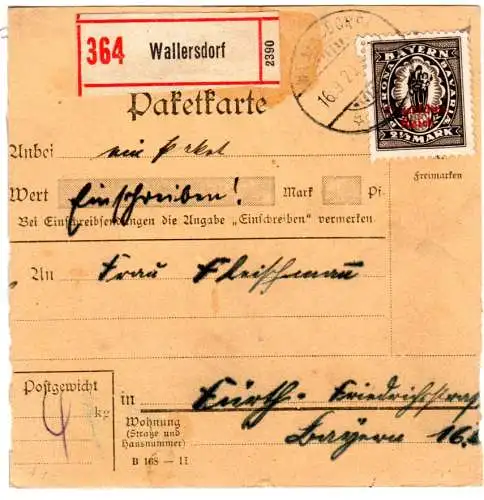 364 Wallersdorf 2390
BAYERN
2½ MARK
Paketkarte
Freimarken
Anbei ein Paket
Wert Einschreiben! Mark Pf.
Bei Einschreibsendungen die Angabe „Einschreiben" vermerken
An Frau Fleischmann
Postgewicht
4 kg
in Fürth - Friedrichstraß
Wohnung
(Straße und
Hausnummer)
Bayern 16
B 168 — 11